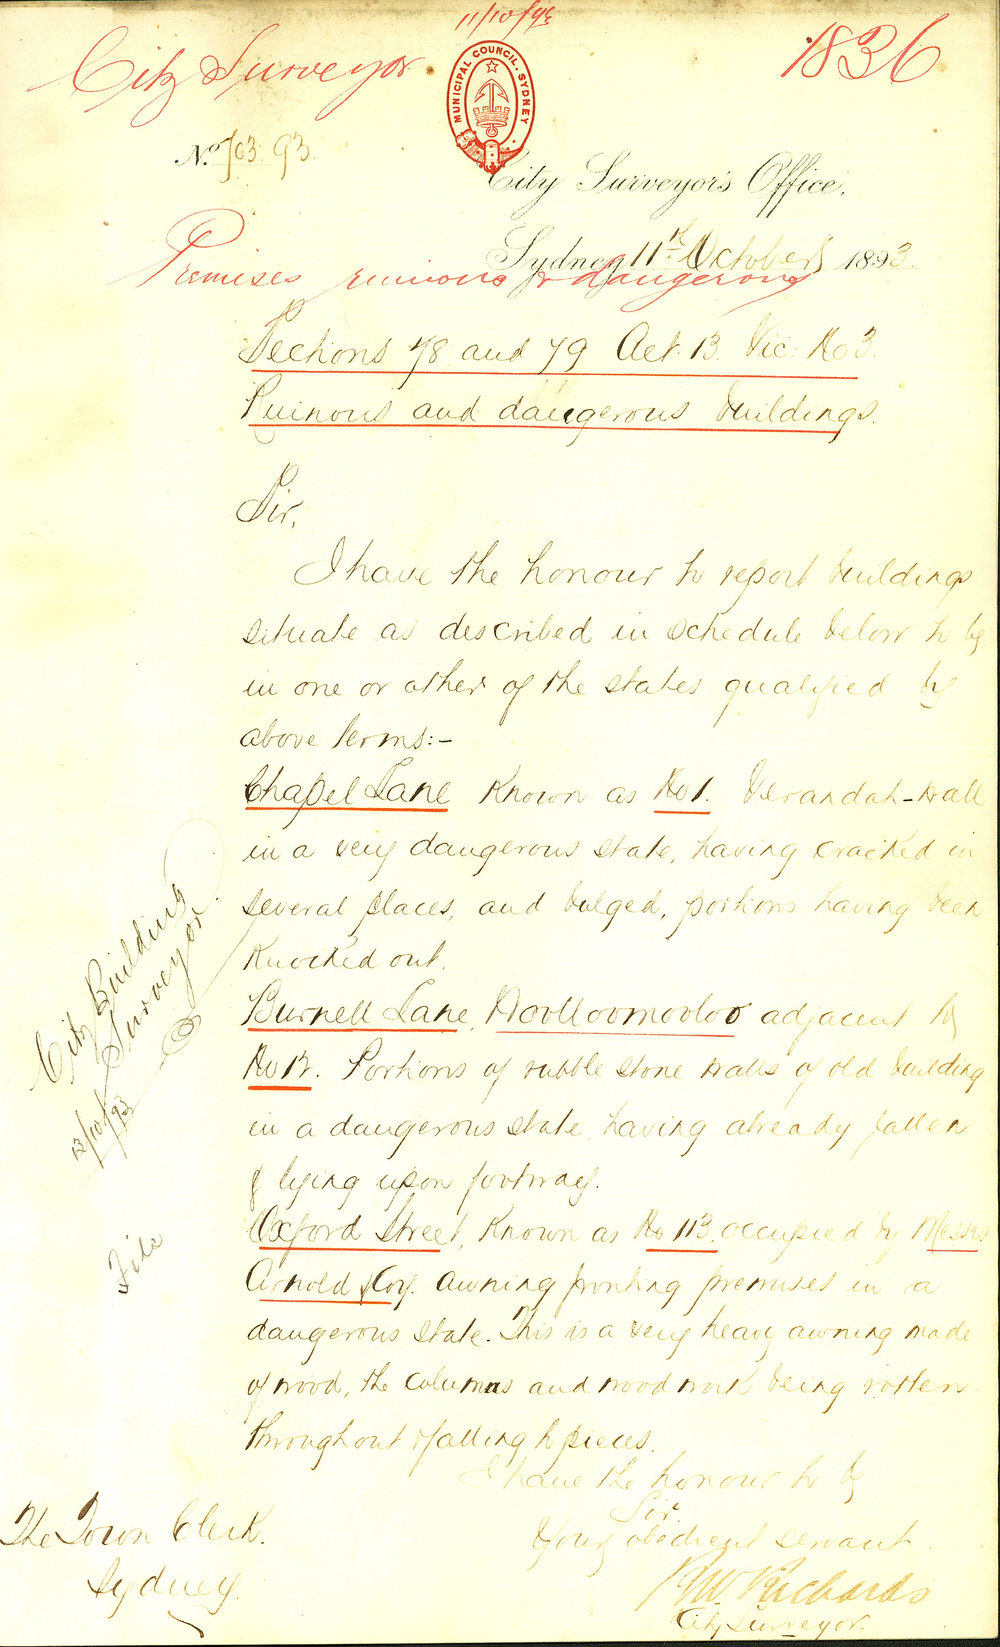 11/10/93
City Surveyor
1836
MUNICIPAL COUNCIL. SYDNEY
No. 703.93.
City Surveyor's Office,
Sydney 11th October 1893.
Premises ruinous & dangerous
Sections 78 and 79 Act. 13. Vic. No 3.
Ruinous and dangerous buildings.
Sir,
I have the honour to report buildings
situate as described in schedule below to be
in one or other of the states qualified by
above terms:-
Chapel Lane known as No 1. Verandah-wall
in a very dangerous state, having cracked in
several places, and bulged, portions having been
knocked out.
Burnell Lane, Woolloomooloo adjacent to
No 12. Portions of rubble stone walls of old building
in a dangerous state, having already fallen
& lying upon footway.
Oxford Street, known as No 113, occupied by Messrs
Arnold & Coy. awning fronting premises in a
dangerous state. This is a very heavy awning made
of wood, the columns and woodwork being rotten
throughout & falling to pieces.
I have the honour to be
Sir.
Your obedient servant.
R.W. Richards
City Surveyor.
The Town Clerk.
Sydney.
City Building
Surveyor.
12/10/93
File